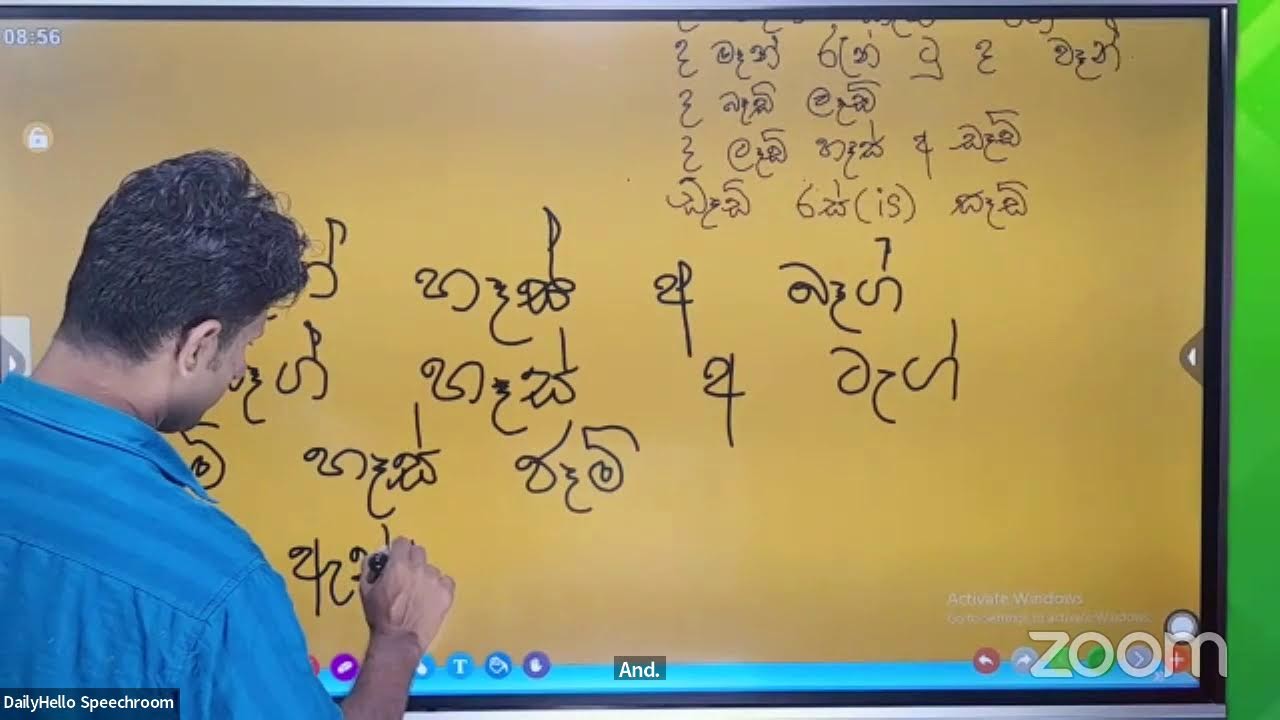 08:56
ද මෑන් රෑන් ටු ද වෑන්
ද බෑඩ් ලෑඩ්
ද ලෑඩ් හෑස් අ ඩෑඩ්
ඩෑඩ් රස්(is) සෑඩ්
හෑස් අ බෑග්
බෑග් හෑස් අ ටැග්
හෑස් ජෑම්
Activate Windows
Go to Settings to activate Windows.
zoom
And.
DailyHello Speechroom